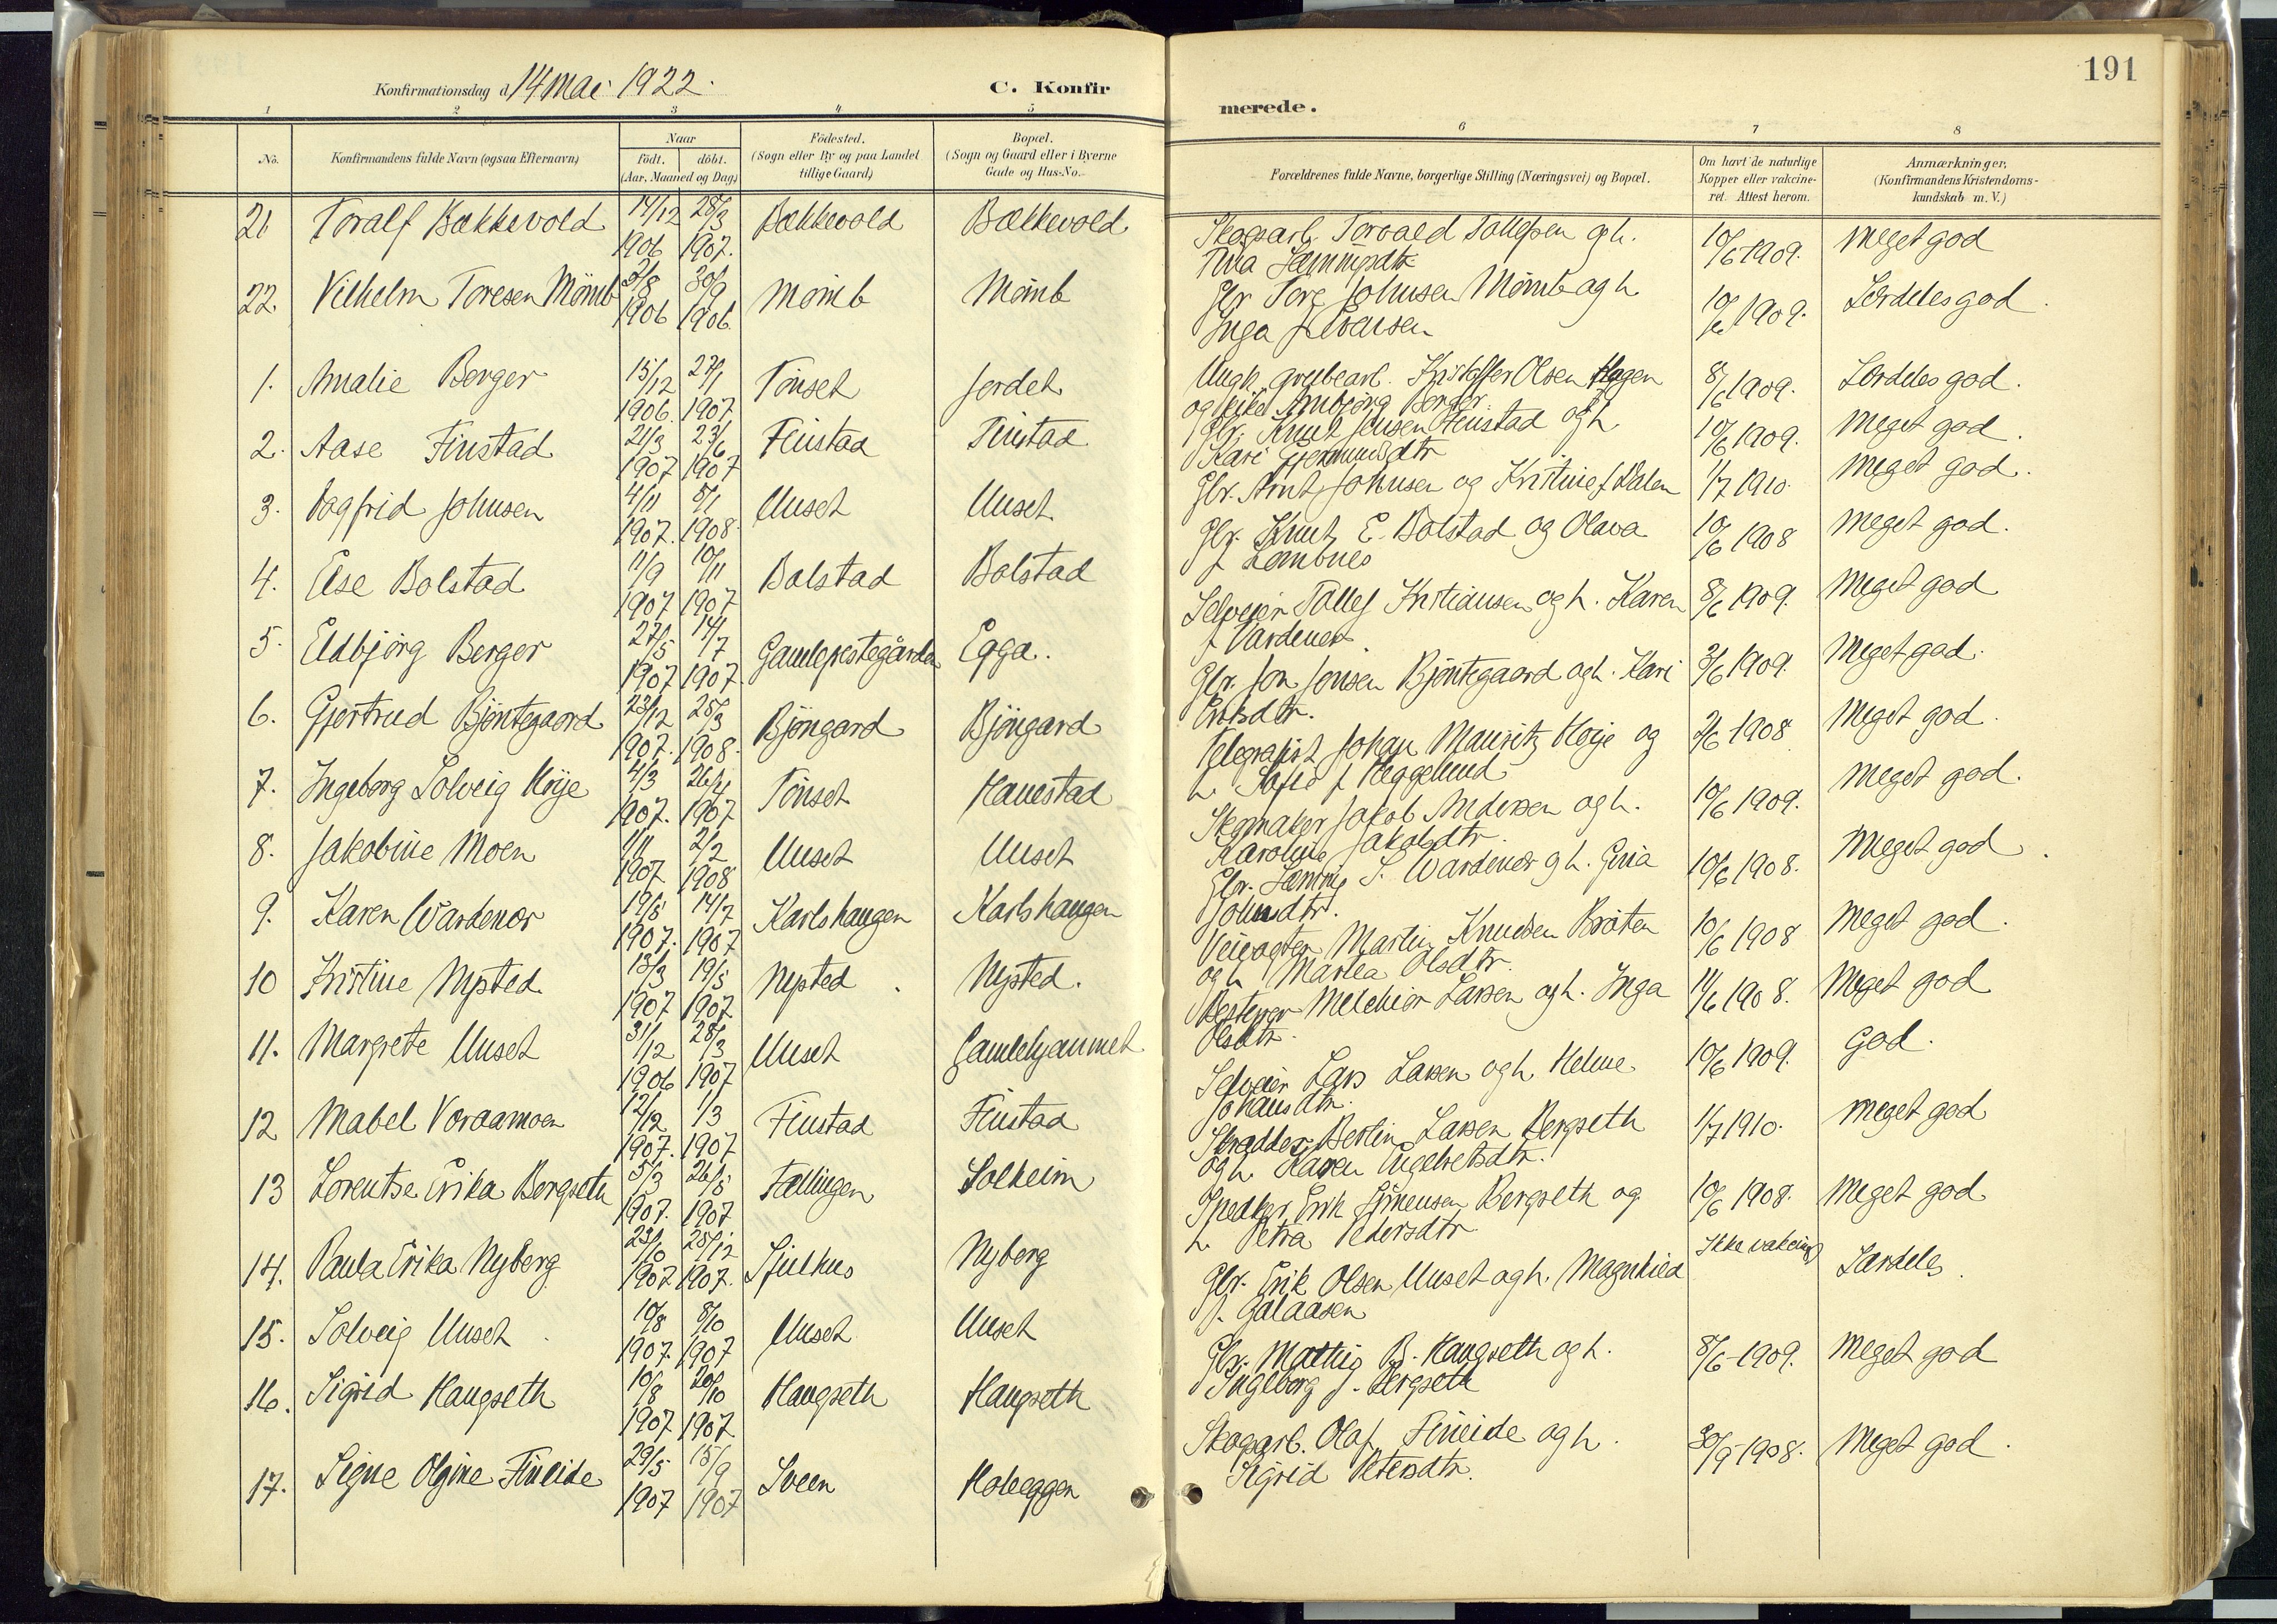 191
Konfirmationsdag d. 14 mai 1922.
C. Konfirmerede.
1 2 3 4 5 6 7 8
No.
Konfirmandens fulde Navn (ogsaa Efternavn)
Naar
födt. döbt.
(Aar, Maaned og Dag)
Födested.
(Sogn eller By og paa Landet
tillige Gaard)
Bopæl.
(Sogn og Gaard eller i Byerne
Gade og Hus-No.
Forældrenes fulde Navne, borgerlige Stilling (Næringsvei) og Bopæl.
Om havt de naturlige
Kopper eller vakcine-
ret. Attest herom.
Anmærkninger,
(Konfirmandens Kristendoms-
kundskab m. V.)
21 Toralf Bækkevold 14/12 1906 28/3 1907. Bækkevold Bækkevold
Skogarb. Torvald Tollefsen og h.
10/6 1909. Meget god
22. Vilhelm Toresen Mömb 2/8 1906 30/9 1906. Mömb Mömb
Gbr. Tore Johnsen Mömb og h.
Inga f. Evensen
10/6 1909. Særdeles god.
1. Amalie Berger 15/12 1906. 27/1 1907. Tönset Jordet
Ungk. grubearb. Kristoffer Olsen Hagen
og pike Anbjörg Berger.
8/6 1909. Særdeles god.
2. Aase Finstad 21/3 1907 23/6 1907 Finstad Finstad
Gbr. Knut Jensen Finstad og h.
Kari Gjermundsdtr
10/6 1909. Meget god.
3. Dagfrid Johnsen 4/11 1907. 8/1 1908. Unset Unset
Gbr. Arnt Johnsen og Kristine f. Dalen
1/7 1910. Meget god.
4. Else Bolstad 11/9 1907 10/11 1907 Bolstad Bolstad
Gbr. Knut E. Bolstad og Olava
f. Lombnes
10/6 1908 Meget god.
5. Eldbjörg Berger 27/5 1907 14/7 1907. Gamleprestegården Egga.
Selveier Tollef Kristiansen og h. Karen
f. Vardenær.
8/6 1909. Meget god
6. Gjertrud Bjöntegaard 23/12 1907. 25/3 1908. Bjöngard Bjöngard
Gbr. Jon Jonsen Bjöntegaard og h. Kari
Eriksdtr.
3/6 1909. Meget god.
7. Ingeborg Solveig Höije 4/3 1907. 26/4 1907 Tönset Hanestad
Telegrafist Johan Mauritz Höije og
h. Sofie f. Heggelund
2/6 1908 Meget god.
8. Jakobine Moen 1/11 1907 2/2 1908 Unset Unset
Skomaker Jakob Andersen og h.
Karoline Jakobsdtr.
10/6 1909. Meget god.
9. Karen Wardenær 19/5 1907. 14/7 1907 Karlshaugen Karlshaugen
Gbr. Hemming S. Wardenær og h. Gina
Johnsdtr.
10/6 1908. Meget god.
10 Kristine Nysted 13/3 1907 19/5 1907 Nysted. Nysted.
Veivogter Martin Knudsen Bråten
og h. Martea Olsdtr.
10/6 1908 Meget god.
11. Margrete Unset 31/12 1906 28/3 1907 Unset Gamlehjemmet
Melchior Larsen og h. Inga
Olsdtr.
11/6 1908. Meget god
12 Mabel Voraamoen 12/12 1907. 1/3 1907 Finstad Finstad
Selveier Lars Larsen og h. Helene
Johansdtr.
10/6 1909. God.
13 Lorentse Erika Bergseth 5/3 1907. 26/5 1907 Fællingen Solheim
Skrædder Bertin Larsen Bergseth
og h. Karen Engebretsdtr.
1/7 1910. Meget god
14. Paula Erika Nyberg 23/10 1907 25/12 1907. Sjulhus Nyberg
Snedker Erik Simensen Bergseth og
h. Petra Pedersdtr.
10/6 1908. Meget god
15. Solveig Unset. 10/8 1907. 8/10 1907 Unset Unset
Gbr. Erik Olsen Unset og h. Magnhild
f. Galaasen
Ikke vakcin. Særdeles.
16. Sigrid Haugseth 10/8 1907 20/10 1907 Haugseth Haugseth
Gbr. Mattis B. Haugseth og h.
Ingeborg f. Bergseth
8/6 1909. Meget god
17. Signe Olgine Fineide 29/5 1907 15/9 1907 Sveen Holeggen
Skogarb. Olaf Fineide og h.
Sigrid Petersdtr.
30/9 1908. Meget god.